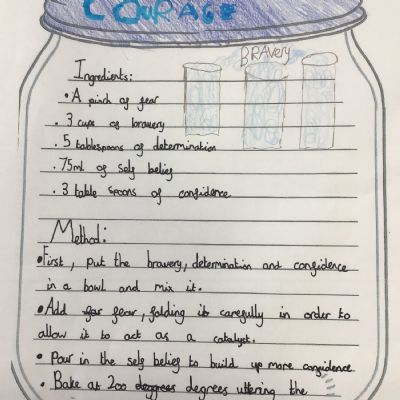 COURAGE
BRAvery
Ingredients:
• A pinch of fear
. 3 cups of bravery
. 5 tablespoons of determination
. 75ml of self belief
. 3 table spoons of confidence
Method:
• First, put the bravery, determination and confidence
in a bowl and mix it.
• Add far fear, folding it carefully in order to
allow it to act as a catalyst.
• Pour in the self belief to build up more confidence.
• Bake at 200 degrees uttering the